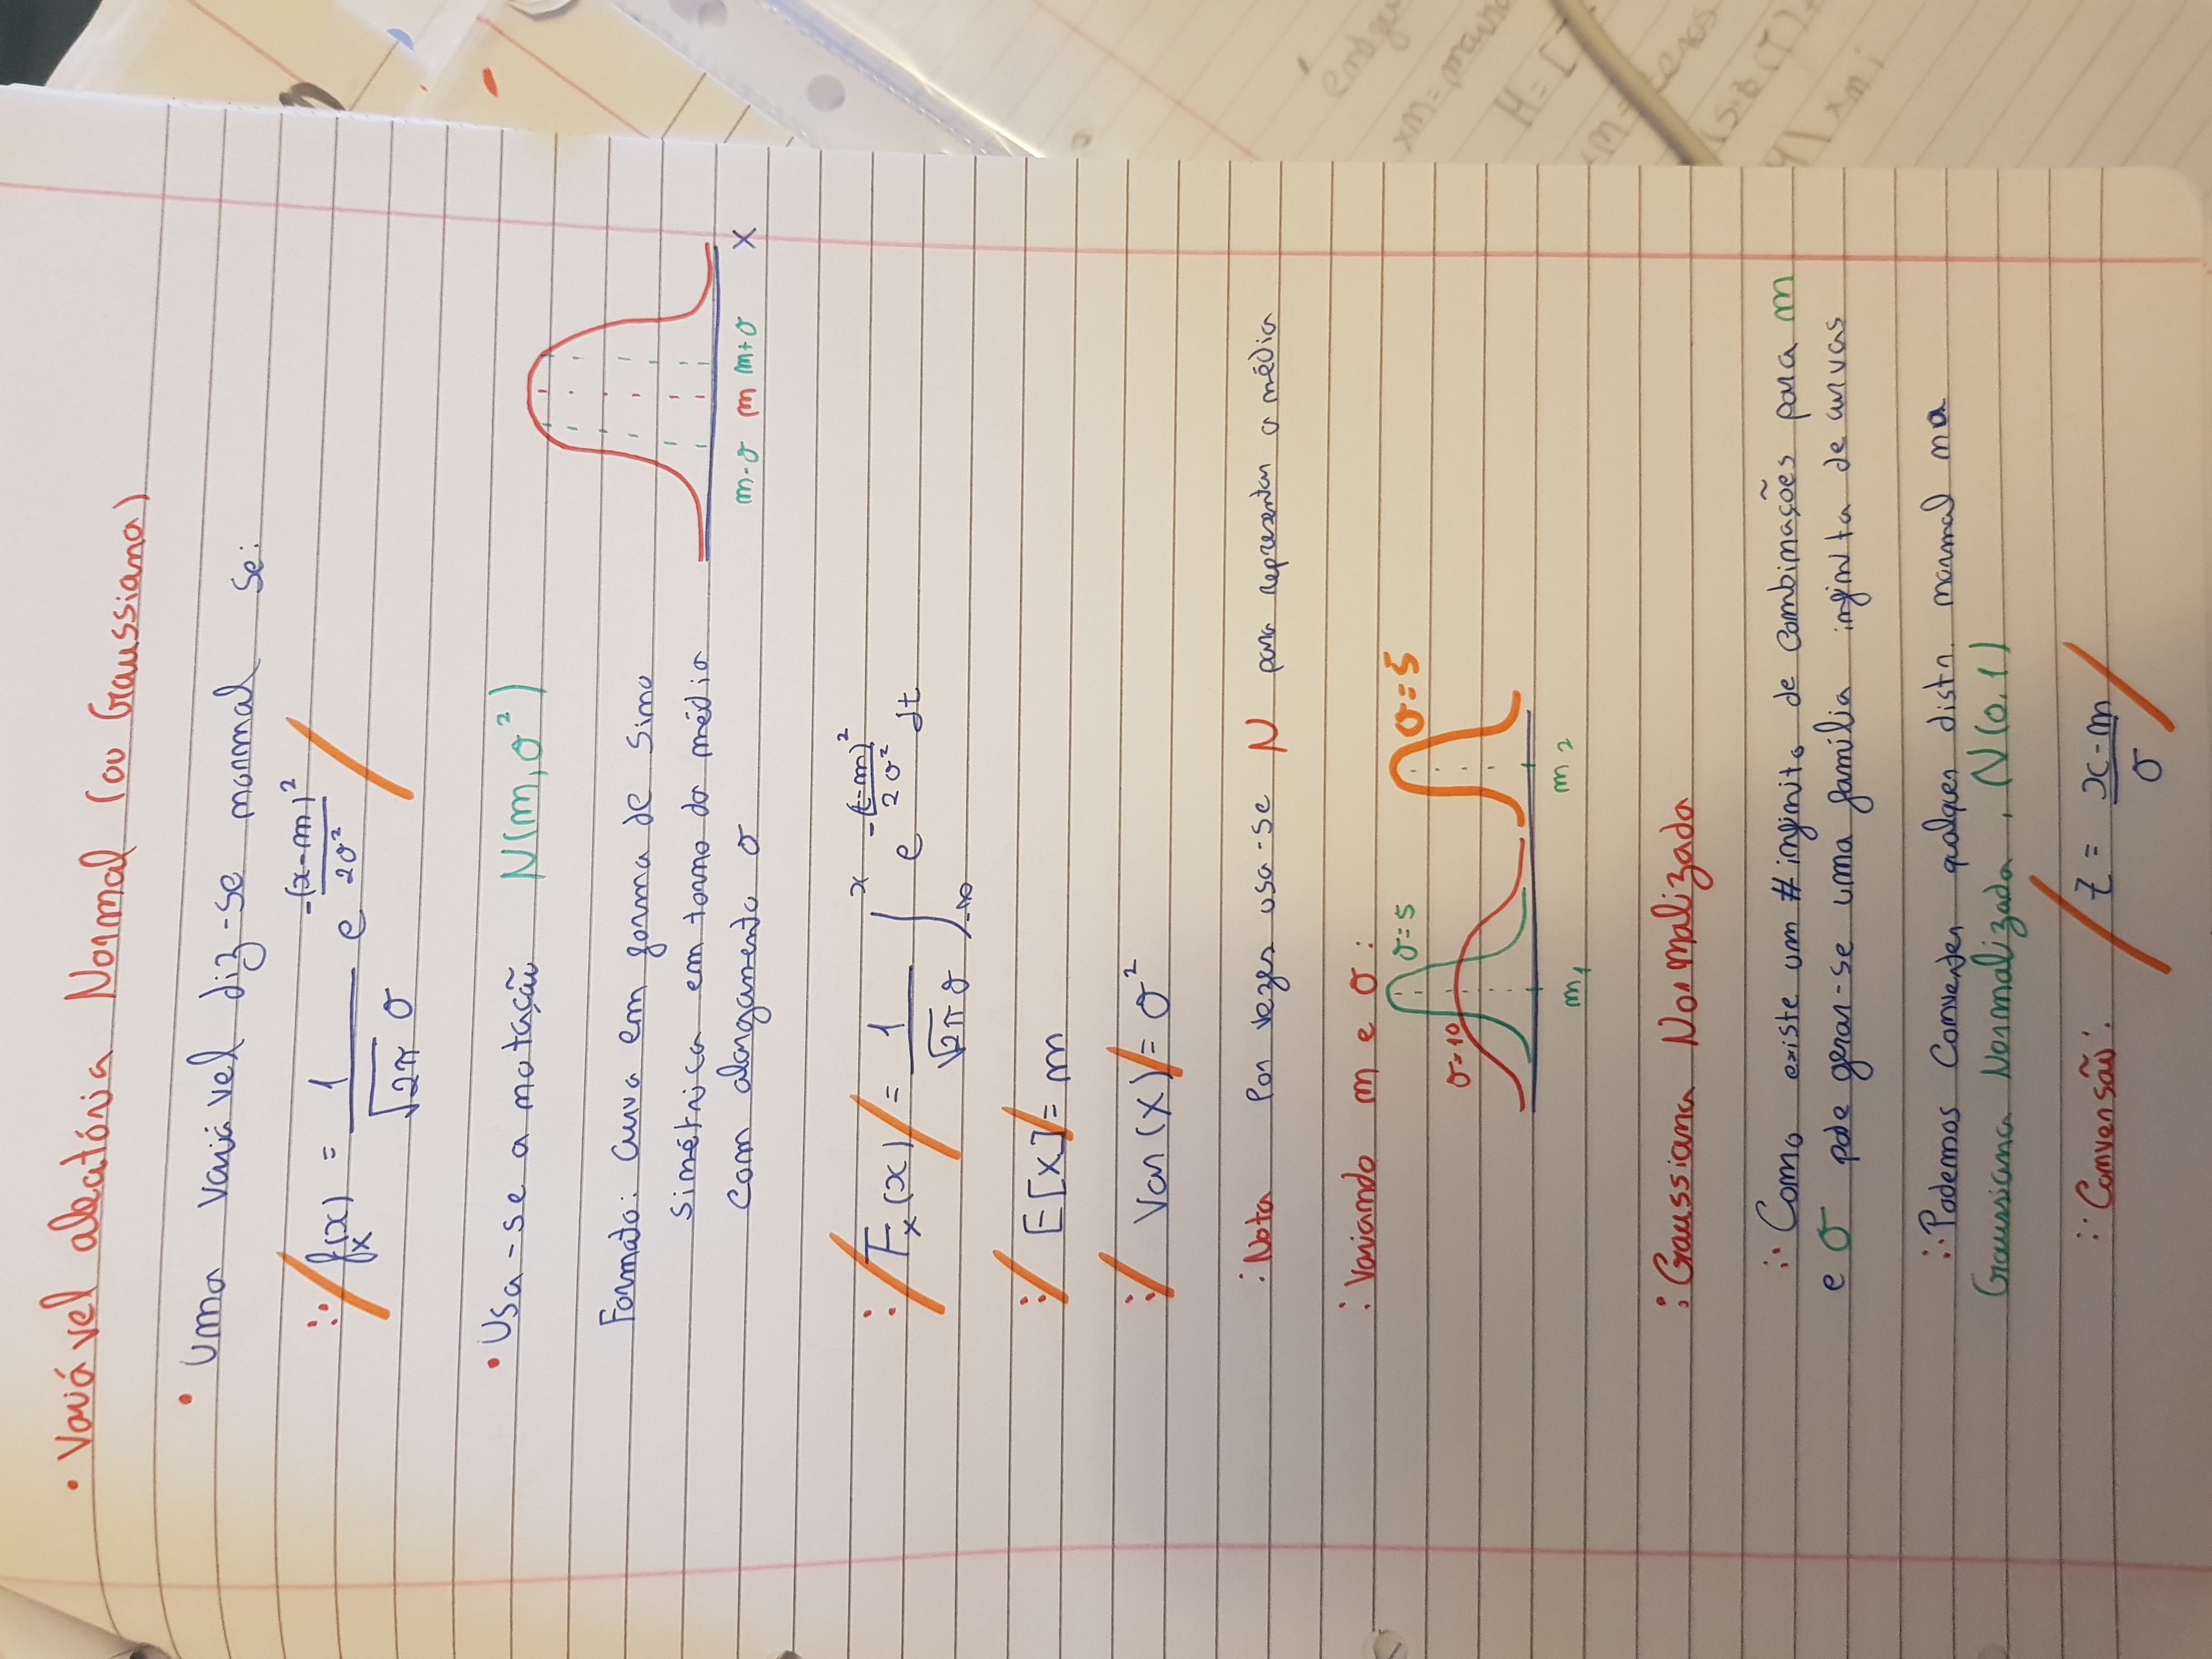 • Variável aleatória Normal (ou Gaussiana)
• Uma variável diz-se normal se:
∵ / f_x(x) = 1/(√2π σ) e^(-(x-m)²/2σ²) /
• Usa-se a notação N(m, σ²)
Formato: Curva em forma de sino
simétrica em torno da média
com alargamento σ
m-σ m m+σ X
: / F_x(x) / = 1/(√2π σ) ∫_-∞^x e^(-(t-m)²/2σ²) dt
: / E[X] / = m
: / Var(X) / = σ²
: Nota Por vezes usa-se N para representar a média
: Variando m e σ:
σ=5 σ=5
σ=10
m1 m2
: Gaussiana Normalizada
∴ Como existe um # infinito de combinações para m
e σ pode gerar-se uma família infinita de curvas
∴ Podemos Converter qualquer distr. normal na
Gaussiana Normalizada, N(0,1)
∷ Conversão: / Z = (x-m)/σ /